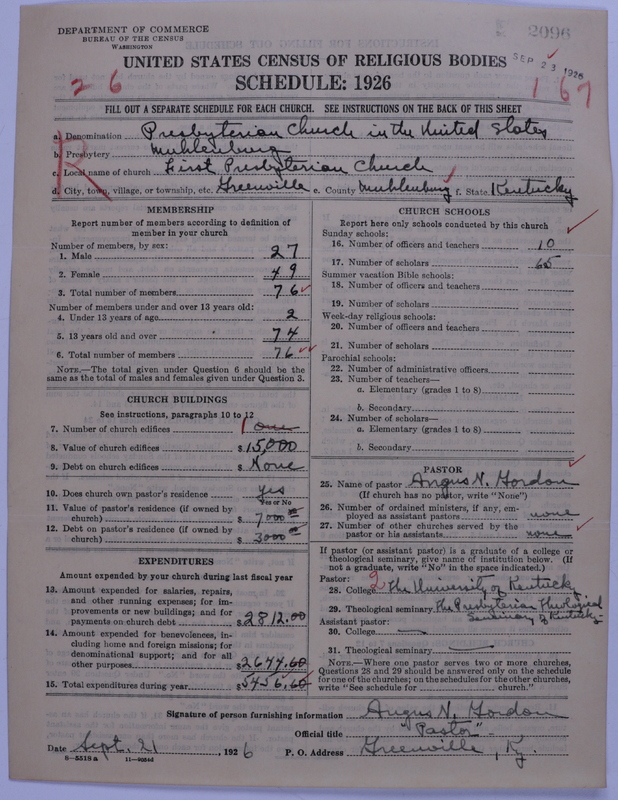 DEPARTMENT OF COMMERCE
BUREAU OF THE CENSUS
WASHINGTON
2096
UNITED STATES CENSUS OF RELIGIOUS BODIES
SEP 23 1926
SCHEDULE: 1926
2 6
1 67
FILL OUT A SEPARATE SCHEDULE FOR EACH CHURCH. SEE INSTRUCTIONS ON THE BACK OF THIS SHEET
R
a. Denomination Presbyterian Church in the United States
b. Presbytery Muhlenburg
c. Local name of church First Presbyterian Church
d. City, town, village, or township, etc. Greenville e. County Muhlenburg f. State Kentucky
MEMBERSHIP
Report number of members according to definition of
member in your church
Number of members, by sex:
1. Male 27
2. Female 49
3. Total number of members 76
Number of members under and over 13 years old:
4. Under 13 years of age 2
5. 13 years old and over 74
6. Total number of members 76
NOTE.—The total given under Question 6 should be
same as the total of males and females given under Question 3.
CHURCH BUILDINGS
See instructions, paragraphs 10 to 12
7. Number of church edifices 1 one
8. Value of church edifices $15,000
9. Debt on church edifices $None
10. Does church own pastor's residence yes
Yes or No
11. Value of pastor's residence (if owned by
church) $7000 00
12. Debt on pastor's residence (if owned by
church) $3000 00
EXPENDITURES
Amount expended by your church during last fiscal year
13. Amount expended for salaries, repairs,
and other running expenses; for im-
provements or new buildings; and for
payments on church debt $2812.00
14. Amount expended for benevolences, in-
cluding home and foreign missions; for
denominational support; and for all
other purposes $2644.60
15. Total expenditures during year $5456.60
CHURCH SCHOOLS
Report here only schools conducted by this church
Sunday schools:
16. Number of officers and teachers 10
17. Number of scholars 65
Summer vacation Bible schools:
18. Number of officers and teachers
19. Number of scholars
Week-day religious schools:
20. Number of officers and teachers
21. Number of scholars
Parochial schools:
22. Number of administrative officers
23. Number of teachers—
a. Elementary (grades 1 to 8)
b. Secondary
24. Number of scholars—
a. Elementary (grades 1 to 8)
b. Secondary
PASTOR
25. Name of pastor Angus N. Gordon
(If church has no pastor, write "None")
26. Number of ordained ministers, if any, em-
ployed as assistant pastors none
27. Number of other churches served by the
pastor or his assistants none
If pastor (or assistant pastor) is a graduate of a college or
theological seminary, give name of institution below. (If
not a graduate, write "No" in the space indicated.)
Pastor:
28. College 2 The University of Kentucky
29. Theological seminary The Presbyterian Theological
Seminary of Kentucky
Assistant pastor:
30. College
31. Theological seminary
NOTE.—Where one pastor serves two or more churches,
Questions 28 and 29 should be answered only on the schedule
for one of the churches; on the schedules for the other churches,
write "See schedule for church."
Signature of person furnishing information Angus N. Gordon
Official title "Pastor"
Date Sept. 21, 1926 P. O. Address Greenville, Ky.
8—5518 a 11—9054d